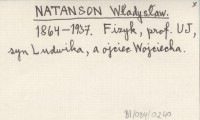 NATANSON Władysław.
1864-1937. Fizyk, prof. UJ,
syn Ludwika, a ojciec Wojciecha.